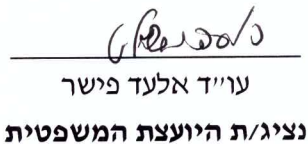 עו״ד אלעד פישר
נציג/ת היועצת המשפטית